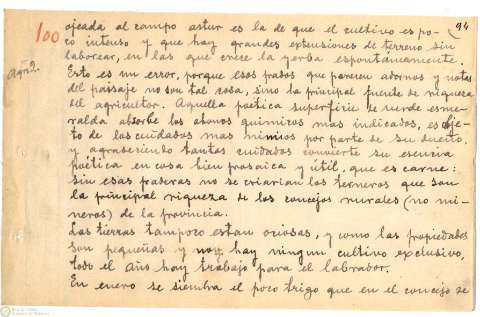 94
100
ojeada al campo astur es la de que el cultivo es po-
co intenso y que hay grandes extensiones de terreno sin
laborear, en las que crece la yerba espontáneamente.
Esto es un error, porque esos prados que parecen adornos y notas
del paisaje no son tal cosa, sino la principal fuente de riqueza
del agricultor. Aquella poética superficie de verde esme-
ralda absorbe los abonos químicos mas indicados, es obje-
to de los cuidados mas mimosos por parte de su dueño,
y agradeciendo tantos cuidados convierte su esencia
poética en cosa bien prosaica y útil, que es carne:
sin esas praderas no se criarían los terneros que son
la principal riqueza de los concejos rurales (no mi-
neros) de la provincia.
Las tierras tampoco estan ociosas, y como las propiedades
son pequeñas y no hay ningun cultivo exclusivo,
todo el año hay trabajo para el labrador.
En enero se siembra el poco trigo que en el concejo se